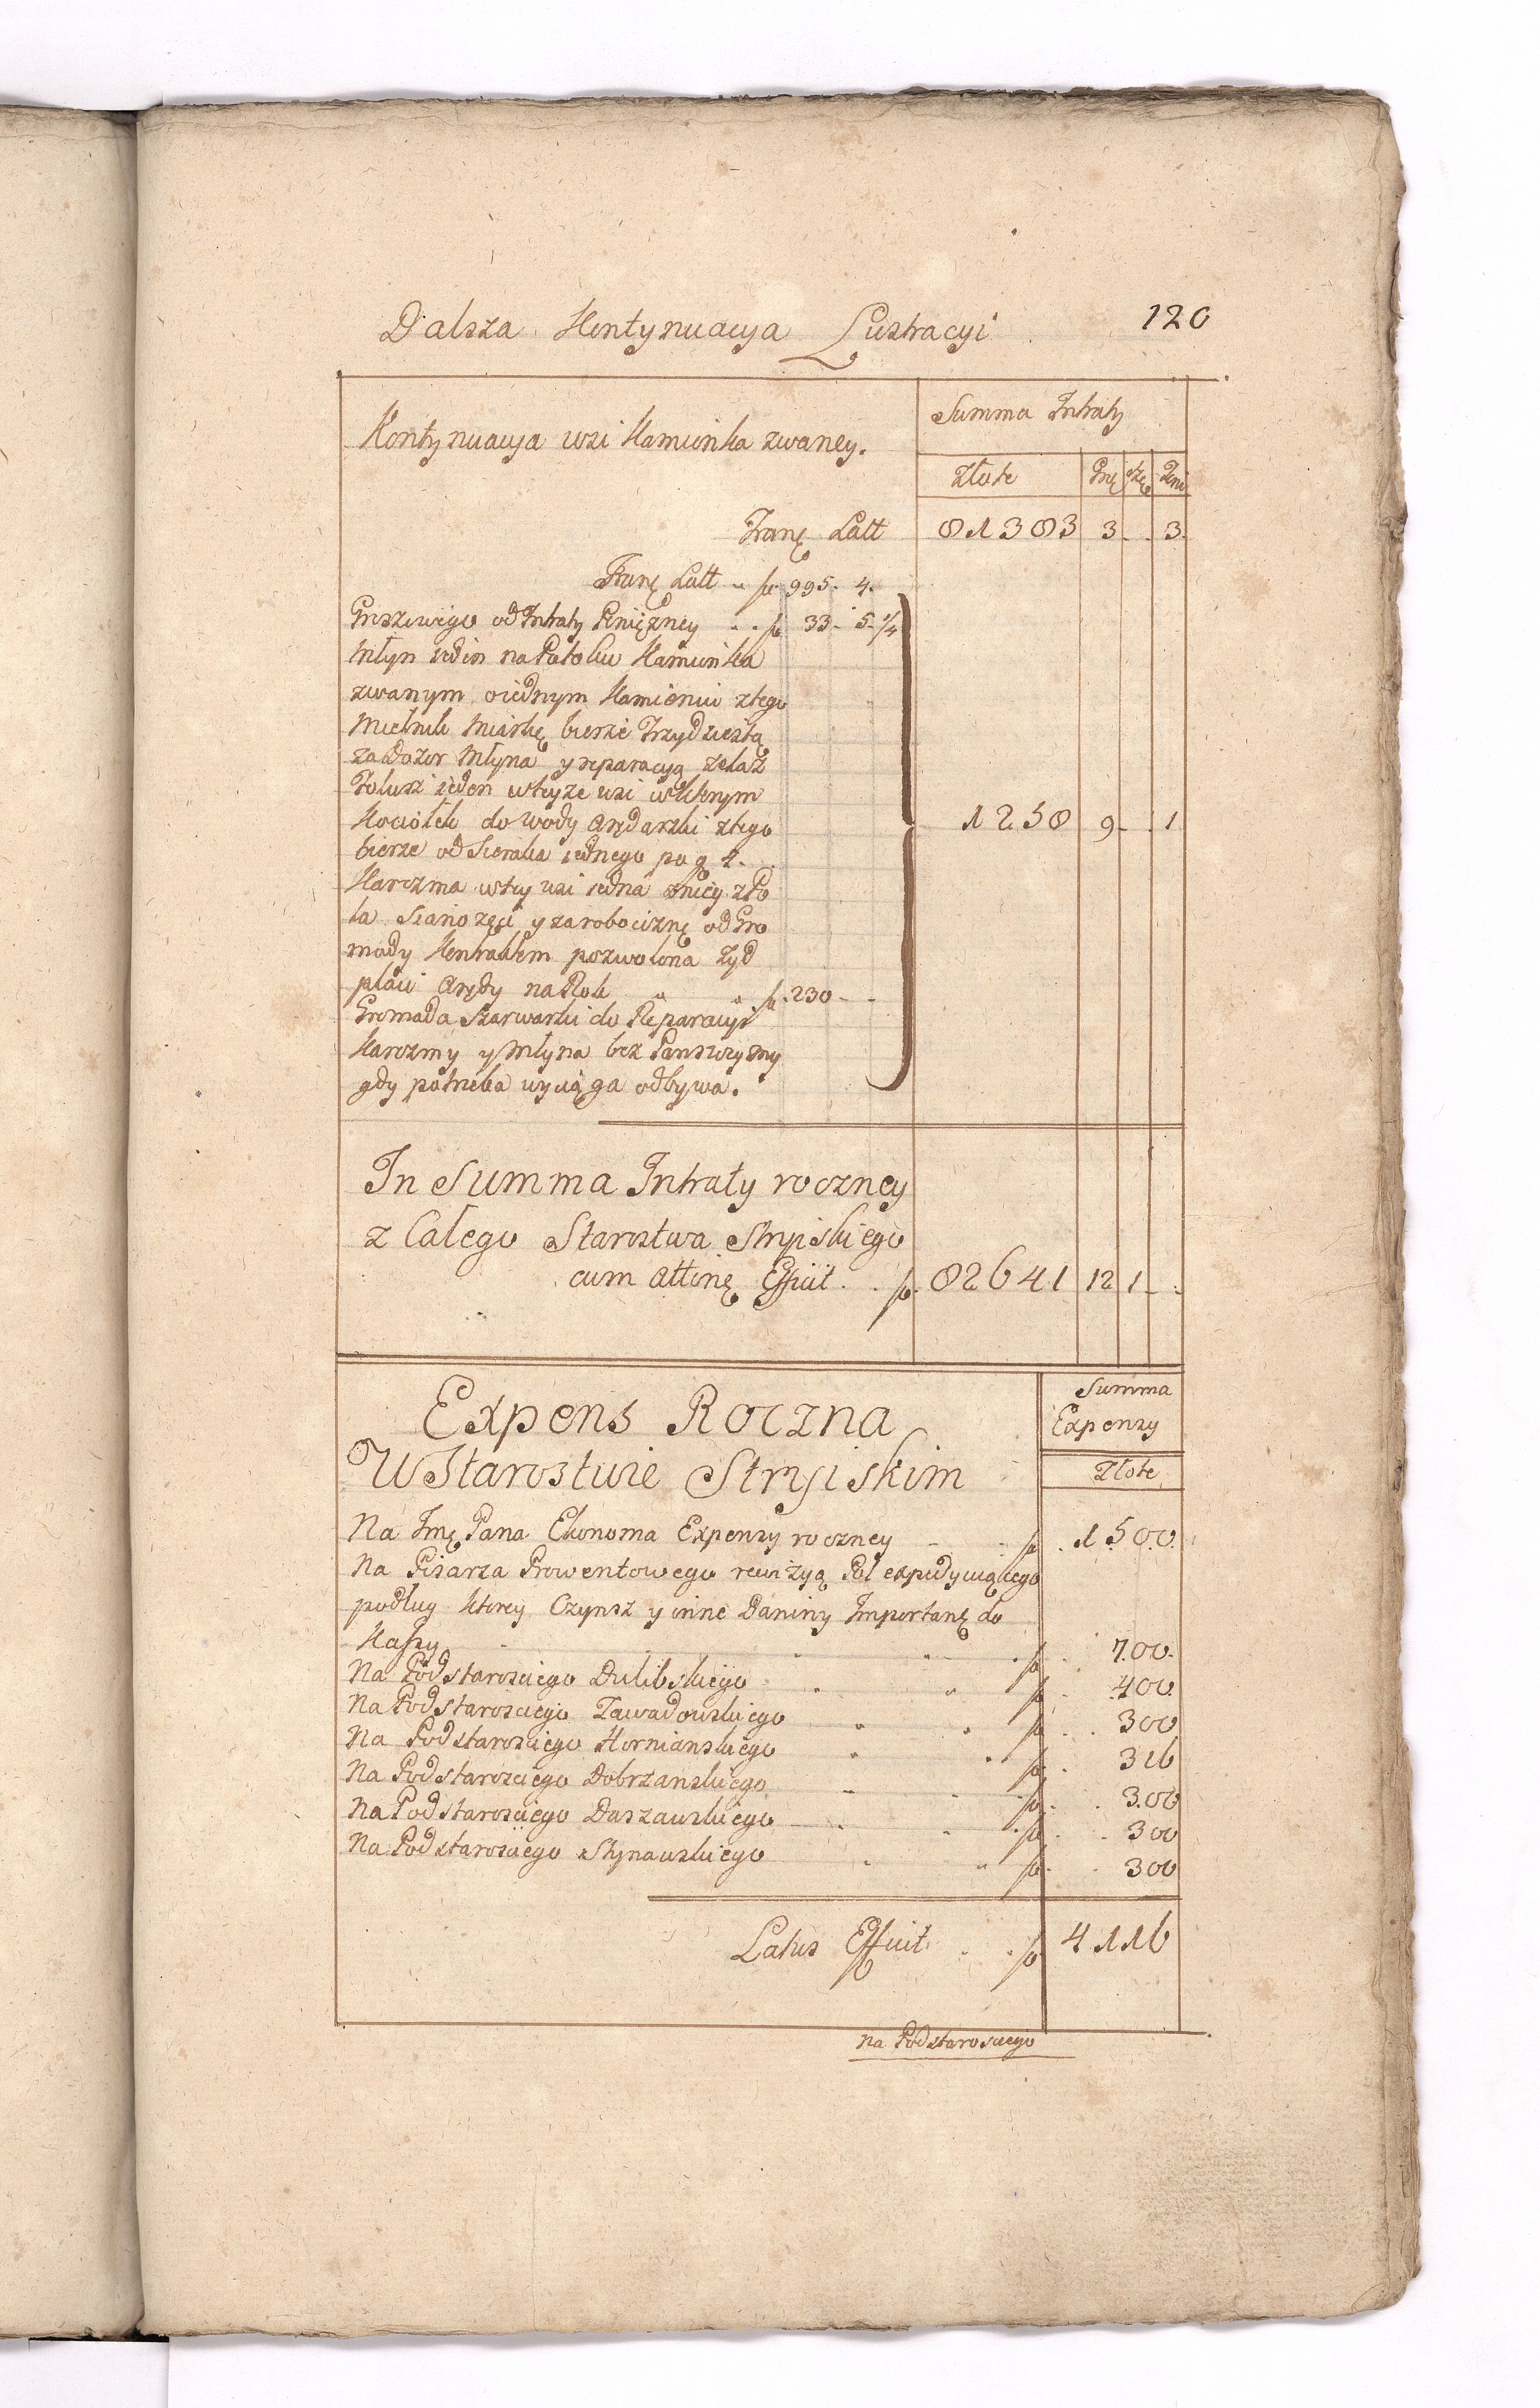 Dalsza Kontynuacya Lustracyi 120
Kontynuacya wsi Kamionka zwaney.
Summa Intraty
Złote Grę Szę Deni
Tranę Latt 81383 3 3
Tranę Latt 995. 4.
Groszowego od Intraty Pnięzney 33. 5. 1/4
Młyn ieden na Potoku Kamionka
zwanym oiednym Kamieniu ztego
Mielnik Miarkę bierze Trzydziestą
za Dozor Młyna y reparacyą zelaz
Folusz ieden wteyze wsi wktorym
Kociołek do wody Arędarski ztego
bierze od Sieraka iednego po g 2.
Karczma wtey wsi iedna zniey z Po
la Sianozęci y zarobociznę od Gro
mady Kontraktem pozwolona Zyd
płaci Arędy na Rok 230
1258 9 1
Gromada Szarwarki do Reparacyi
Karczmy y Młyna bez Panszczyzny
gdy potrzeba wyciąga odbywa.
In Summa Intraty roczney
z Całego Starostwa Stryiskiego
cum Attinę Effuit 82641 12 1
Expens Roczna
W Starostwie Stryiskim
Summa
Expensy
Złote
Na Jmę Pana Ekonoma Expensy roczney 1500
Na Pisarza Prowentowego rewizyą Pol expedyuiącego
podług ktorey Czynsz y inne Daniny Importanę do
Kassy 700
Na Podstarosciego Dulibskiego 400
Na Podstarosciego Zawadowskiego 300
Na Podstarosciego Hornianskiego 316
Na Podstarosciego Dobrzanskiego 300
Na Podstarosciego Daszawskiego 300
Na Podstarosciego Słynawskiego 300
Latus Effuit 4116
Na Podstarosciego